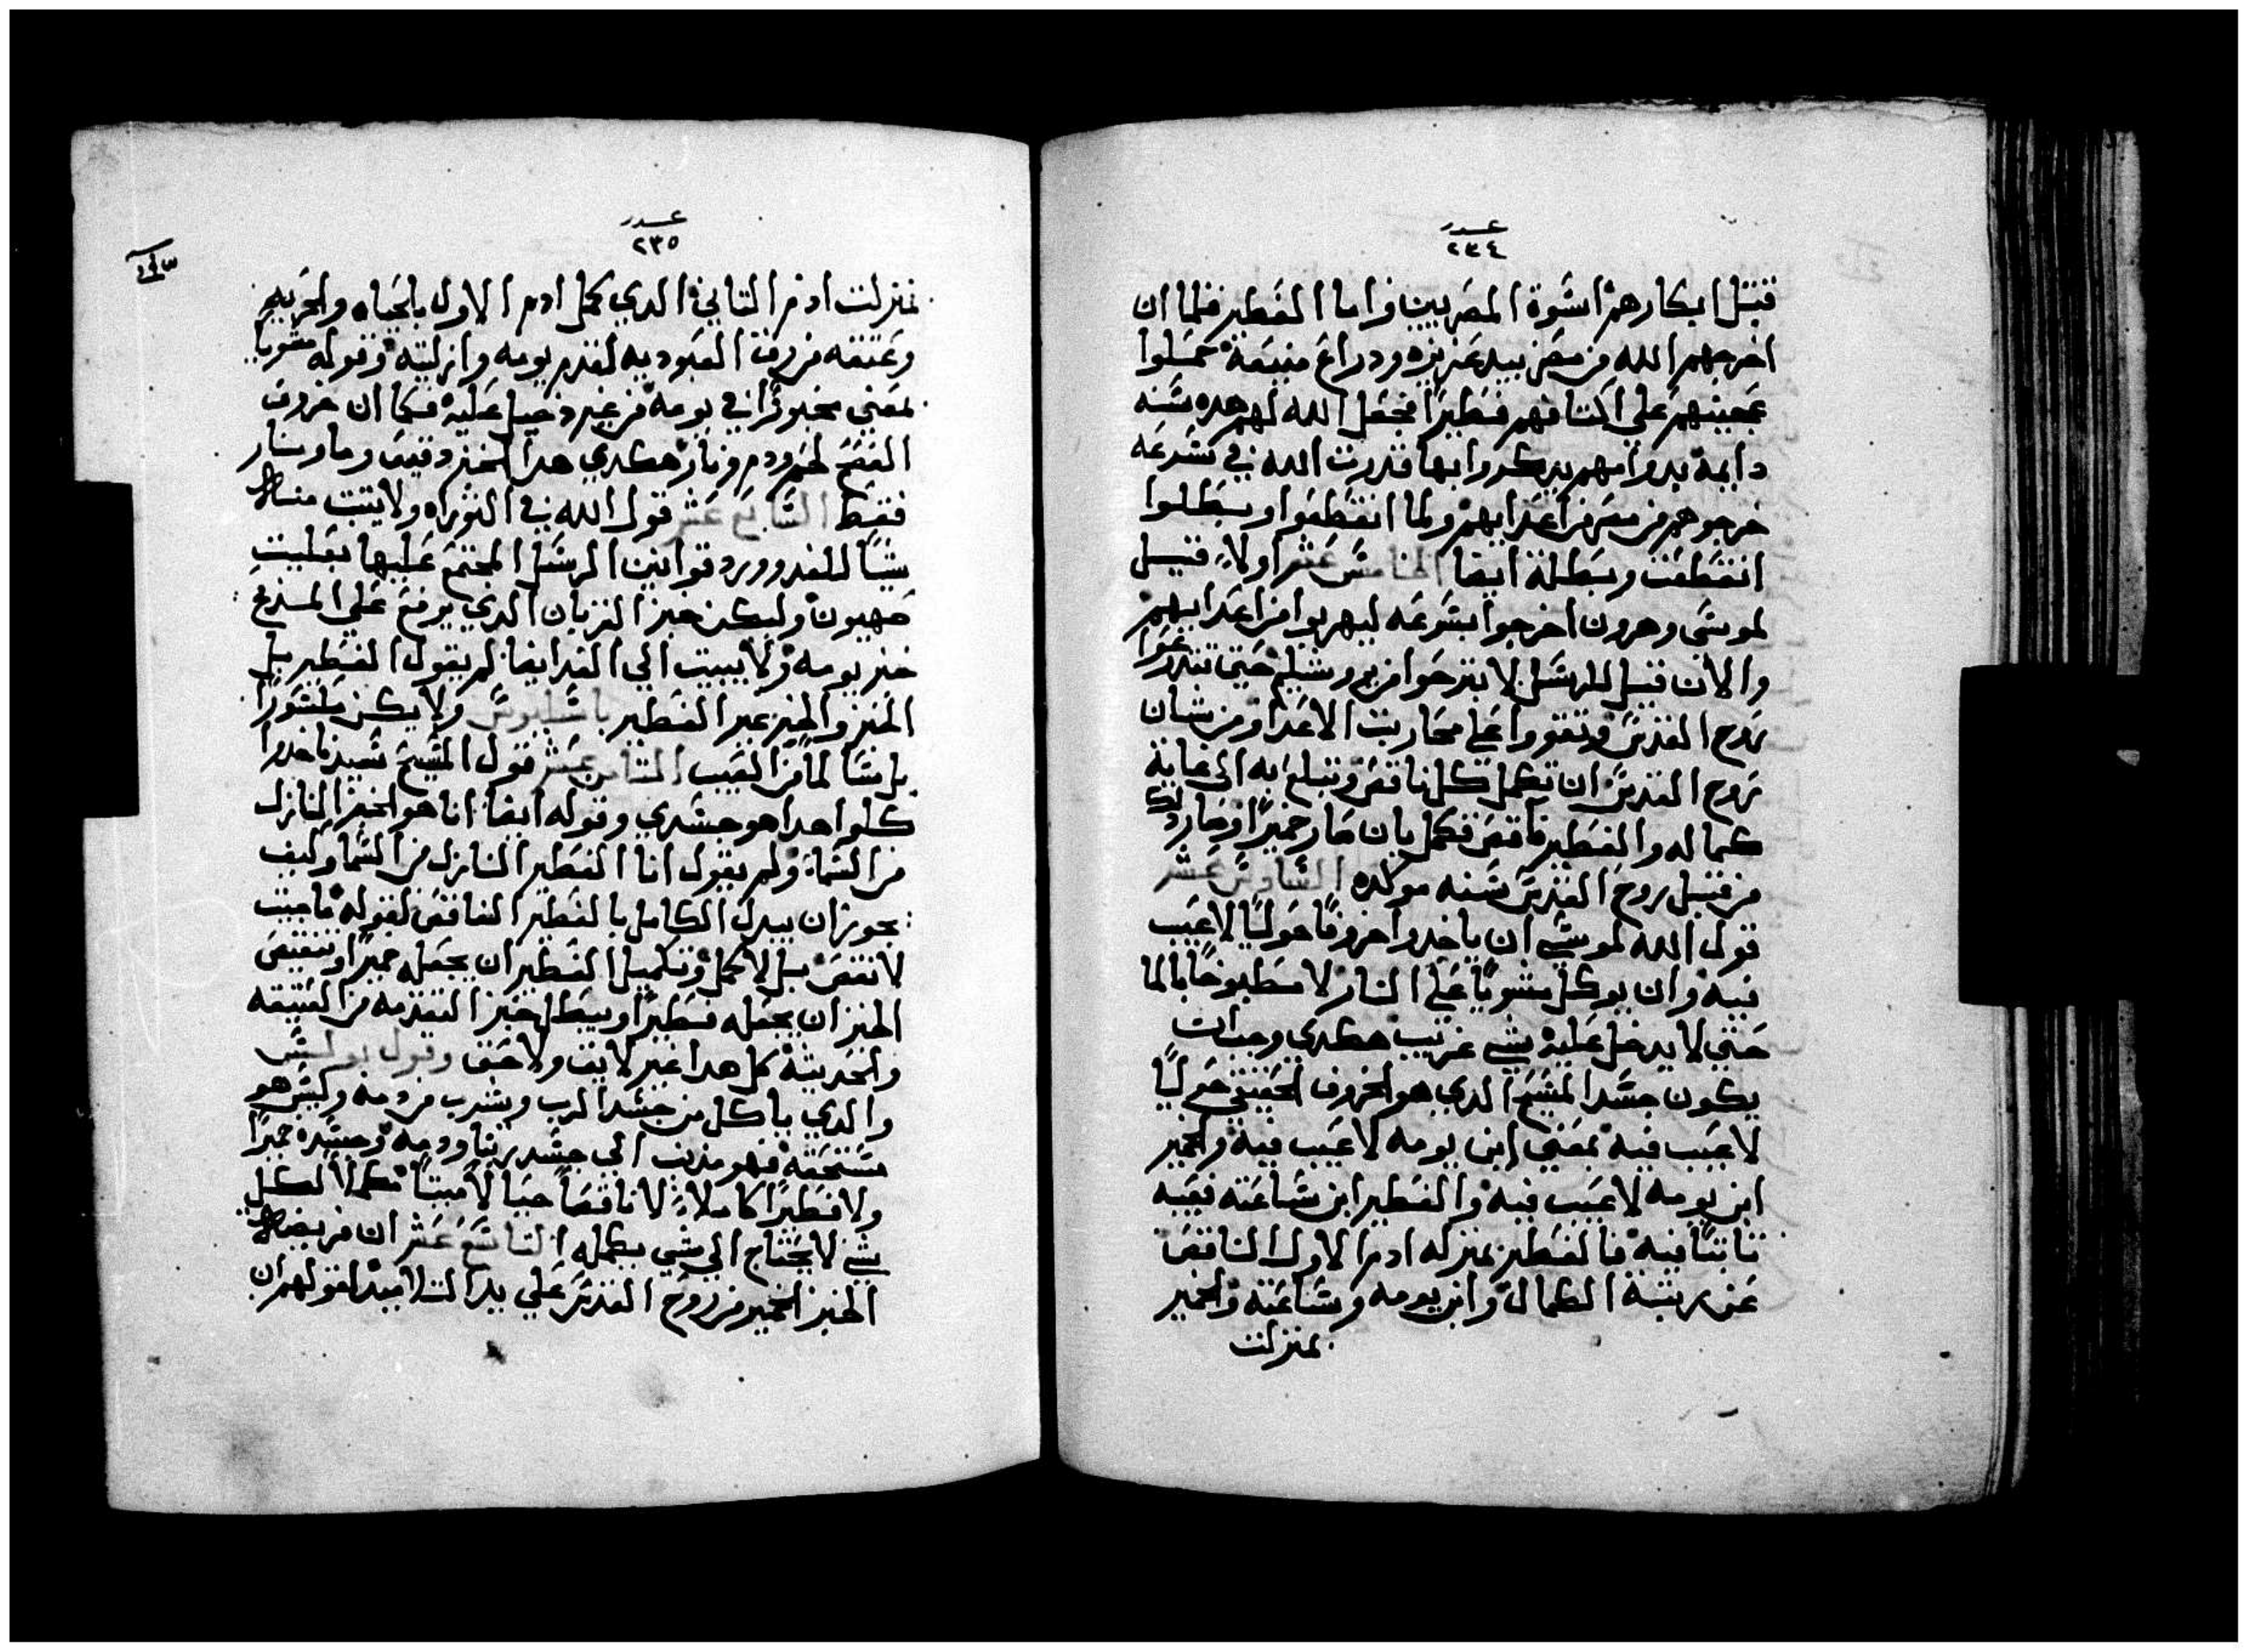 عدد
٢٣٤
قتل ابكارهم اسوة المصريين واما الفطير فلما ان
اخرجهم الله من مصر بيد عزيزه ودراع منيعة حملوا
عجينهم على اكتافهم فطيرًا فجعل الله لهم هده سنه
دايمة بدوامهم يدكروا بها قدرت الله في سرعه
خروجهم من مصر من اعدايهم ولما انقطعوا وبطلوا
انقطعت وبطلة ايضا الخامس عشر اولاً قيل
لموسى وهرون اخرجوا بسرعه ليهربوا من اعدايهم
والان قيل للرسل لا تبرحوا من يروشليم حتى تتدرعوا
روح القدس وتقووا على محاربت الاعدا ومن شان
روح القدس ان تكمل كل ناقص وتبلغ به الى غاية
كماله والفطير ناقص فكمل بان صار خميرًا وصار دلك
من قبل روح القدس سنه موكده السادس عشر
قول الله لموسي ان ياخدوا خروفًا حوليًا لا عيب
فيه وان يوكل مشويًا على النار لا مطبوخًا بالما
حتي لا يدخل عليه شي غريب هكدي وجدات
يكون جسد المسيح الدي هو الخروف الحقيقي حوليًا
لا عيب فيه بمعني ابن يومه لا عيب فيه والخمير
ابن يومه لا عيب فيه والفطير ابن ساعته فعيبه
ثابتًا فيه فالفطير بمنزله ادم الاول الناقص
عن رتبة الكمال وابن يومه وساعته والخمير
بمنزلت
عدد
٢٣٥
بمنزلت ادم التاني الدي كمل ادم الاول بالحياه والحريه
وعتقه من رق العبوديه لقدم يومه وازليته وقوله مشويا
بمعني مخبوزًا في يومه من غير دخيل عليه فكما ان خروف
الفصح لحم ودم ونار هكدي هدا الخبز دقيق وما ونار
فقط السابع عشر قول الله في التوراه ولا يبت منه
شيًا للغد وورد قوانين الرسل المجتمع عليها بعليت
صهيون وليكن خبز القربان الدي يرفع على المدبح
خبز يومه ولا يبيت الي الغد ايضا لم يقول الفطير بل
الخبز والخبز غير الفطير باسليوس ولا يكن مكسورًا
بل سالمًا من العيب الثامن عشر قول المسيح لتلاميده خدوا
كلوا هدا هو جسدي وقوله ايضا انا هو الخبز النازل
من السما ولم يقول انا الفطير النازل من السما وكيف
يجوز ان يبدل الكامل بالفطير الناقص لقوله ما جيت
لانقص بل لاكمل وتكميل الفطير ان يجعله خميرًا وتنقيص
الخبز ان يجعله فطيرًا ويبطل خبز التقدمه من العتيقه
والحديثه كل هدا غير لايق ولا حق وقول بولس
والدي ياكل من جسد الرب ويشرب من دمه وليس هو
مستحقه فهو مدنب الي جسد ربنا ودمه وجسده خميرًا
ولا فطيرًا كاملاً لا ناقصًا حيًا لا ميتًا مكملاً لكل
شي لا يحتاج الي شي يكمله التاسع عشر ان فريضة
الخبز الخمير من روح القدس على يد التلاميد لقولهم ان